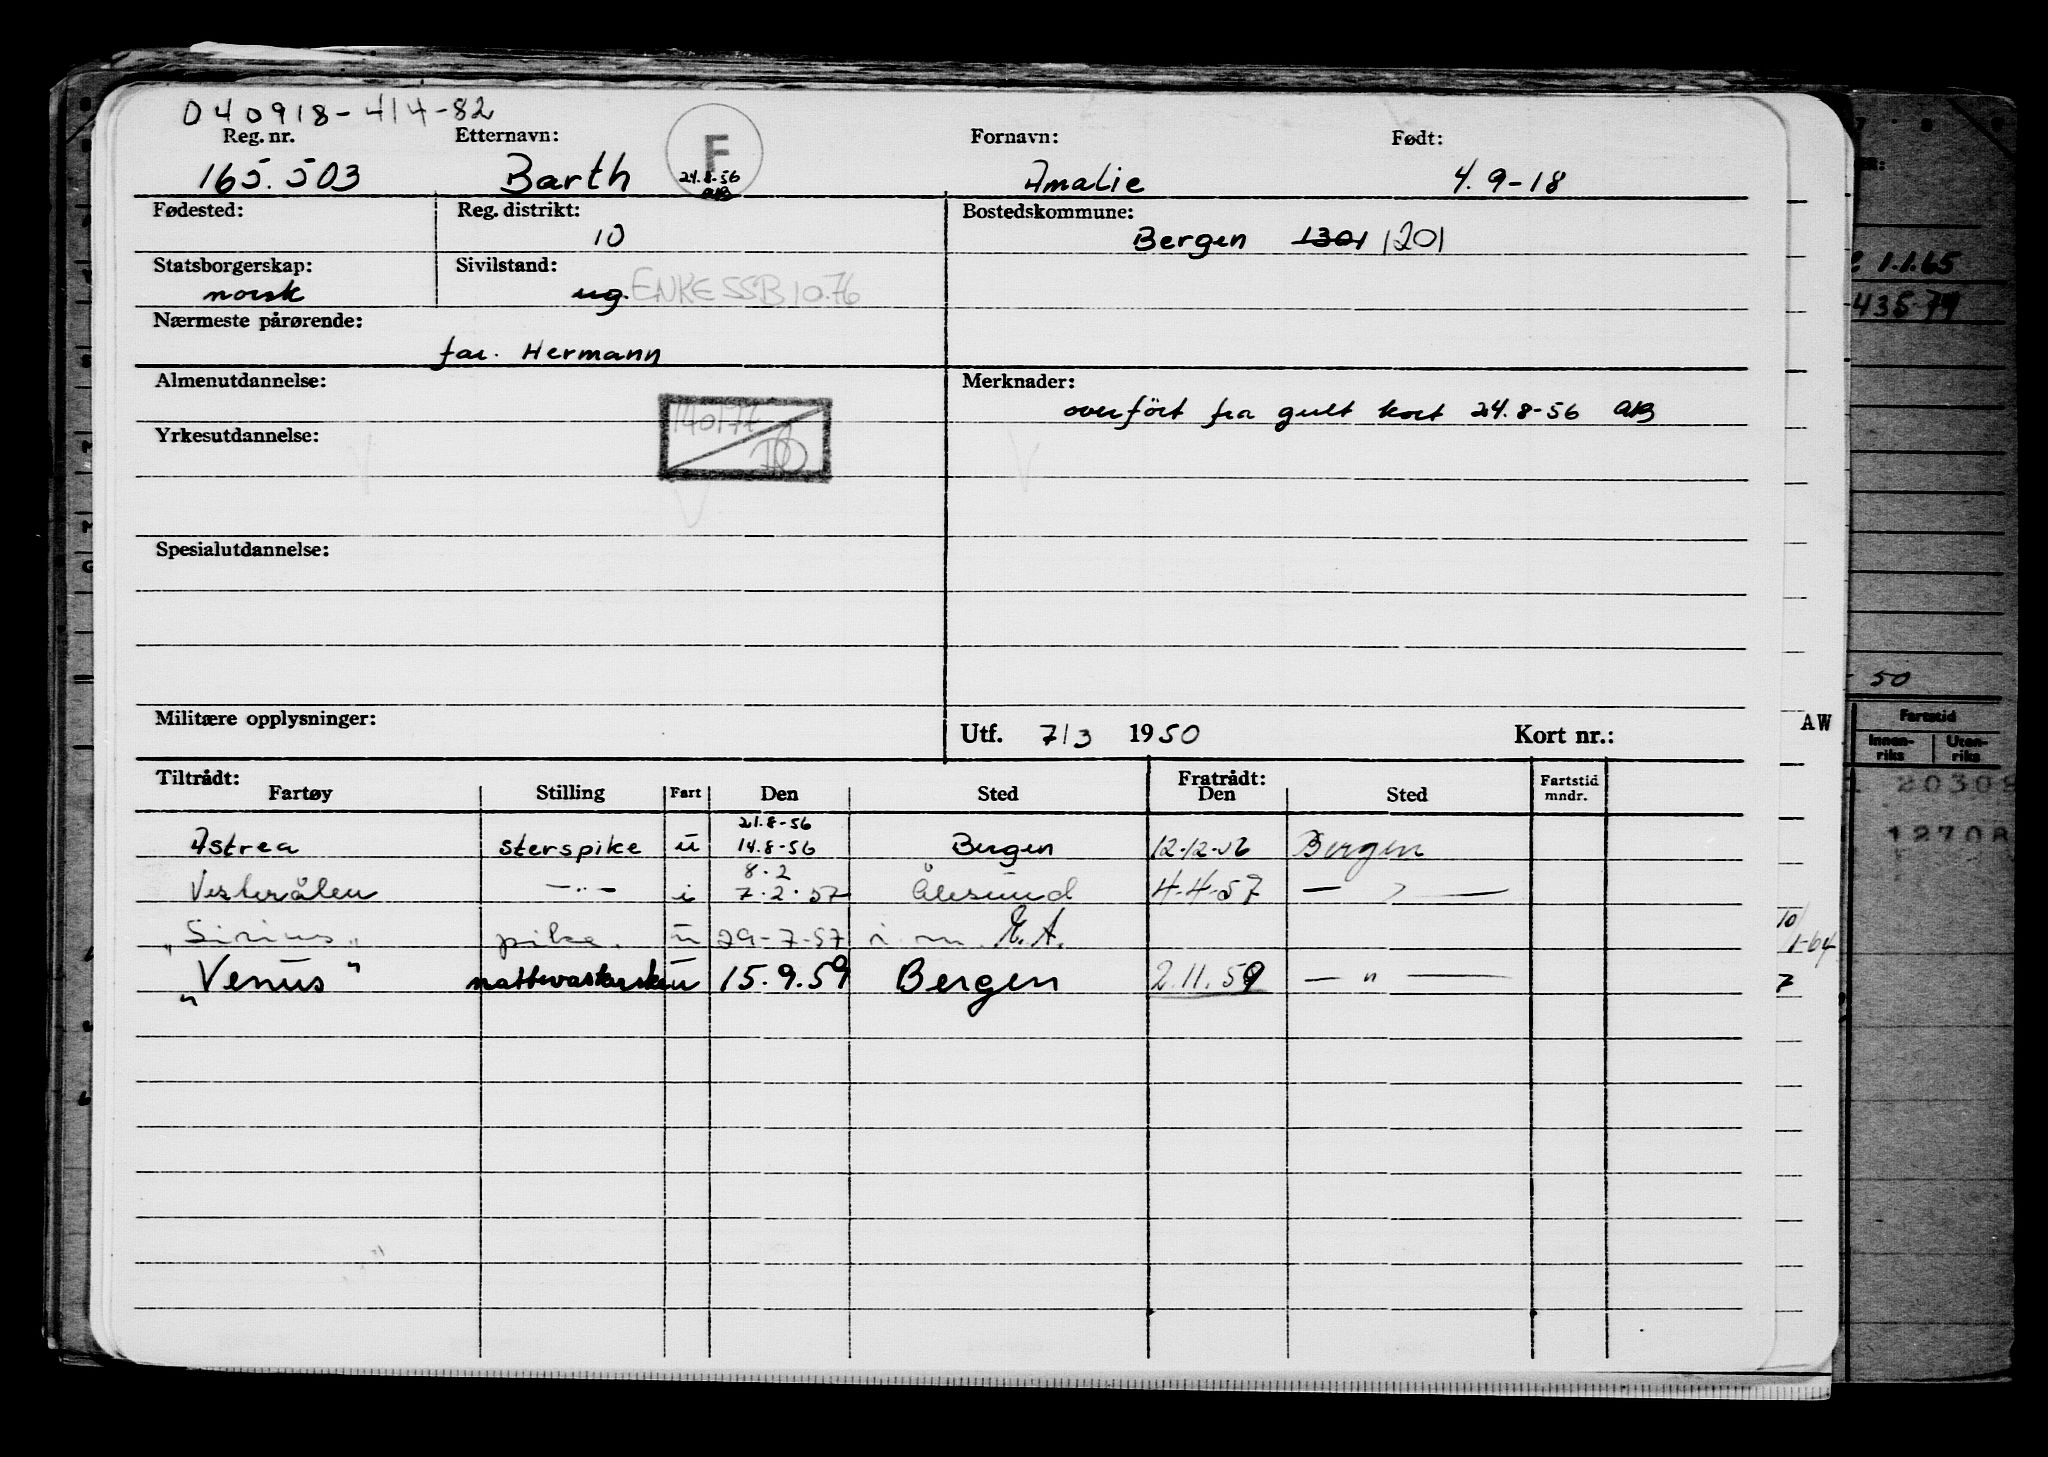 040918-414-82
Reg. nr. Etternavn: F Fornavn: Født:
165.503 Barth 24.8.56 AB Amalie 4.9-18
Fødested: Reg. distrikt: Bostedskommune:
10 Bergen 1301 1201
Statsborgerskap: Sivilstand:
norsk ug. ENKE SSB 10.76
Nærmeste pårørende:
far. Hermann
Almenutdannelse: Merknader:
overført fra gult kort 24.8-56 AB
Yrkesutdannelse:
Spesialutdannelse:
Militære opplysninger: Utf. 7/3 1950 Kort nr.:
Tiltrådt: Fratrådt:
Fartøy Stilling Fart Den Sted Den Sted Fartstid mndr.
21.8-56
Astrea sterspike u 14.8-56 Bergen 12-12-56 Bergen
8.2
Vesterålen —"— i 7.2.57 Ålesund 4-4-57 — " —
"Sirius" pike. u 29-7-57 i.m. E.A.
"Venus" u 15.9.59 Bergen 2.11.59 — " —
AW
10/
1-64
7
1.1.65
435-79
50
Fartstid
Innen-riks Uten-riks
20308
12708